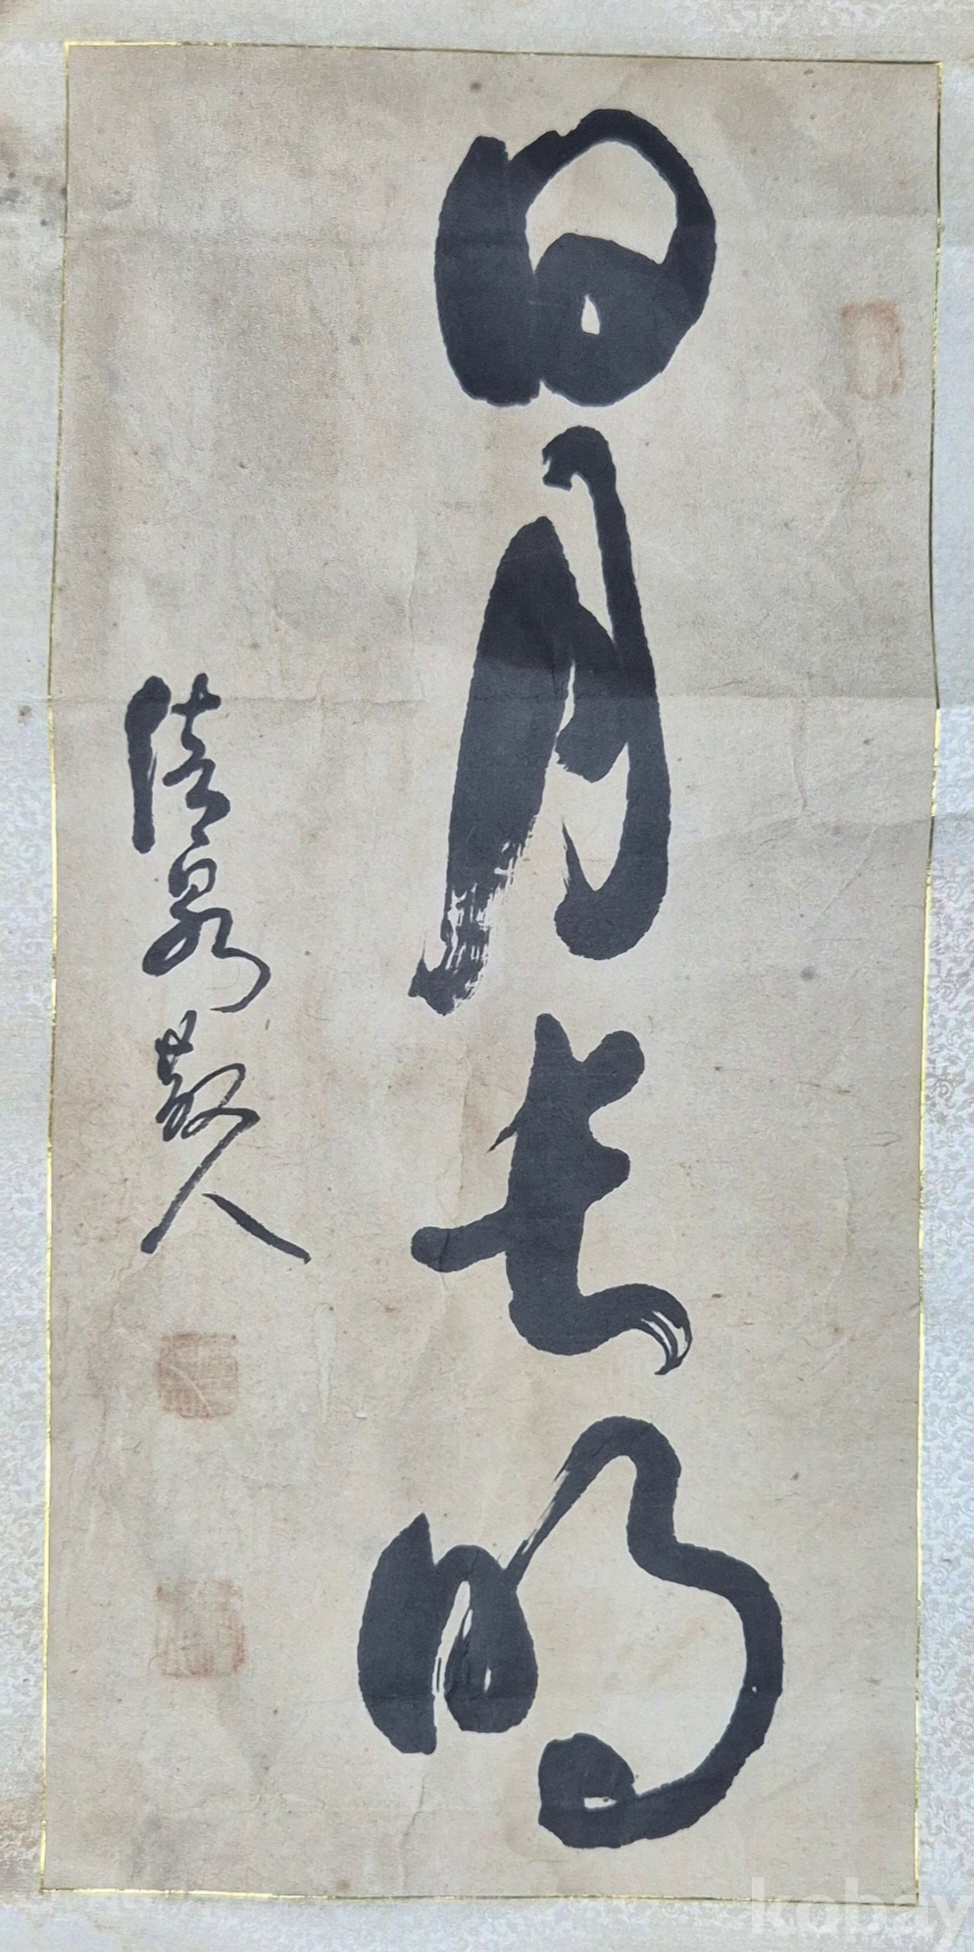 日月長明
信泉散人
kobay